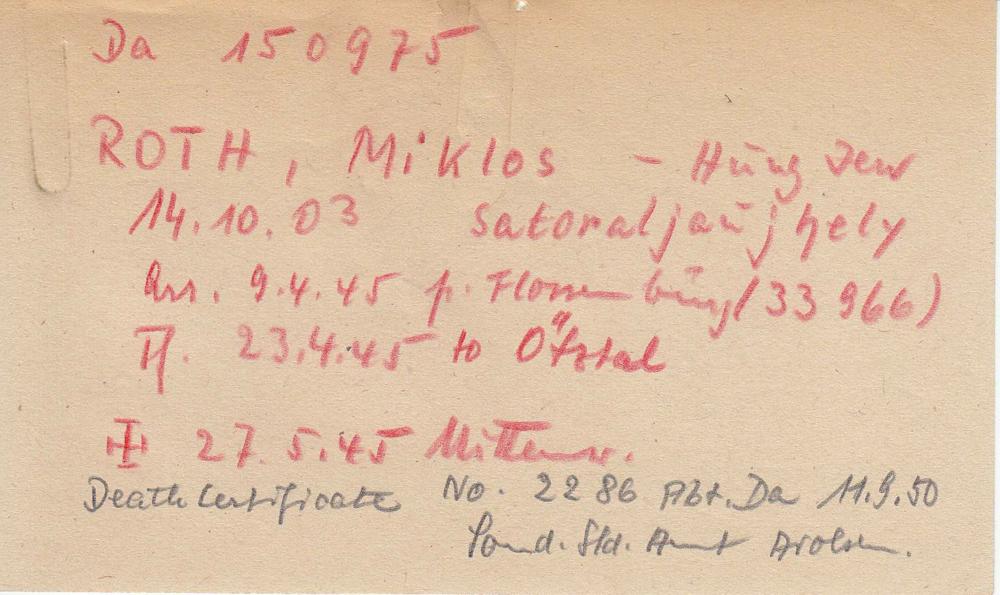 Da 150975
ROTH, Miklos - Hung Jew
14.10.03 Satoraljaujhely
Arr. 9.4.45 f. Flossenbürg (33 966)
Tf. 23.4.45 to Ötztal
27.5.45 Mittenw.
Death Certificate No. 2286 Abt. Da 11.9.50
Sond. Std. Amt Arolsen.